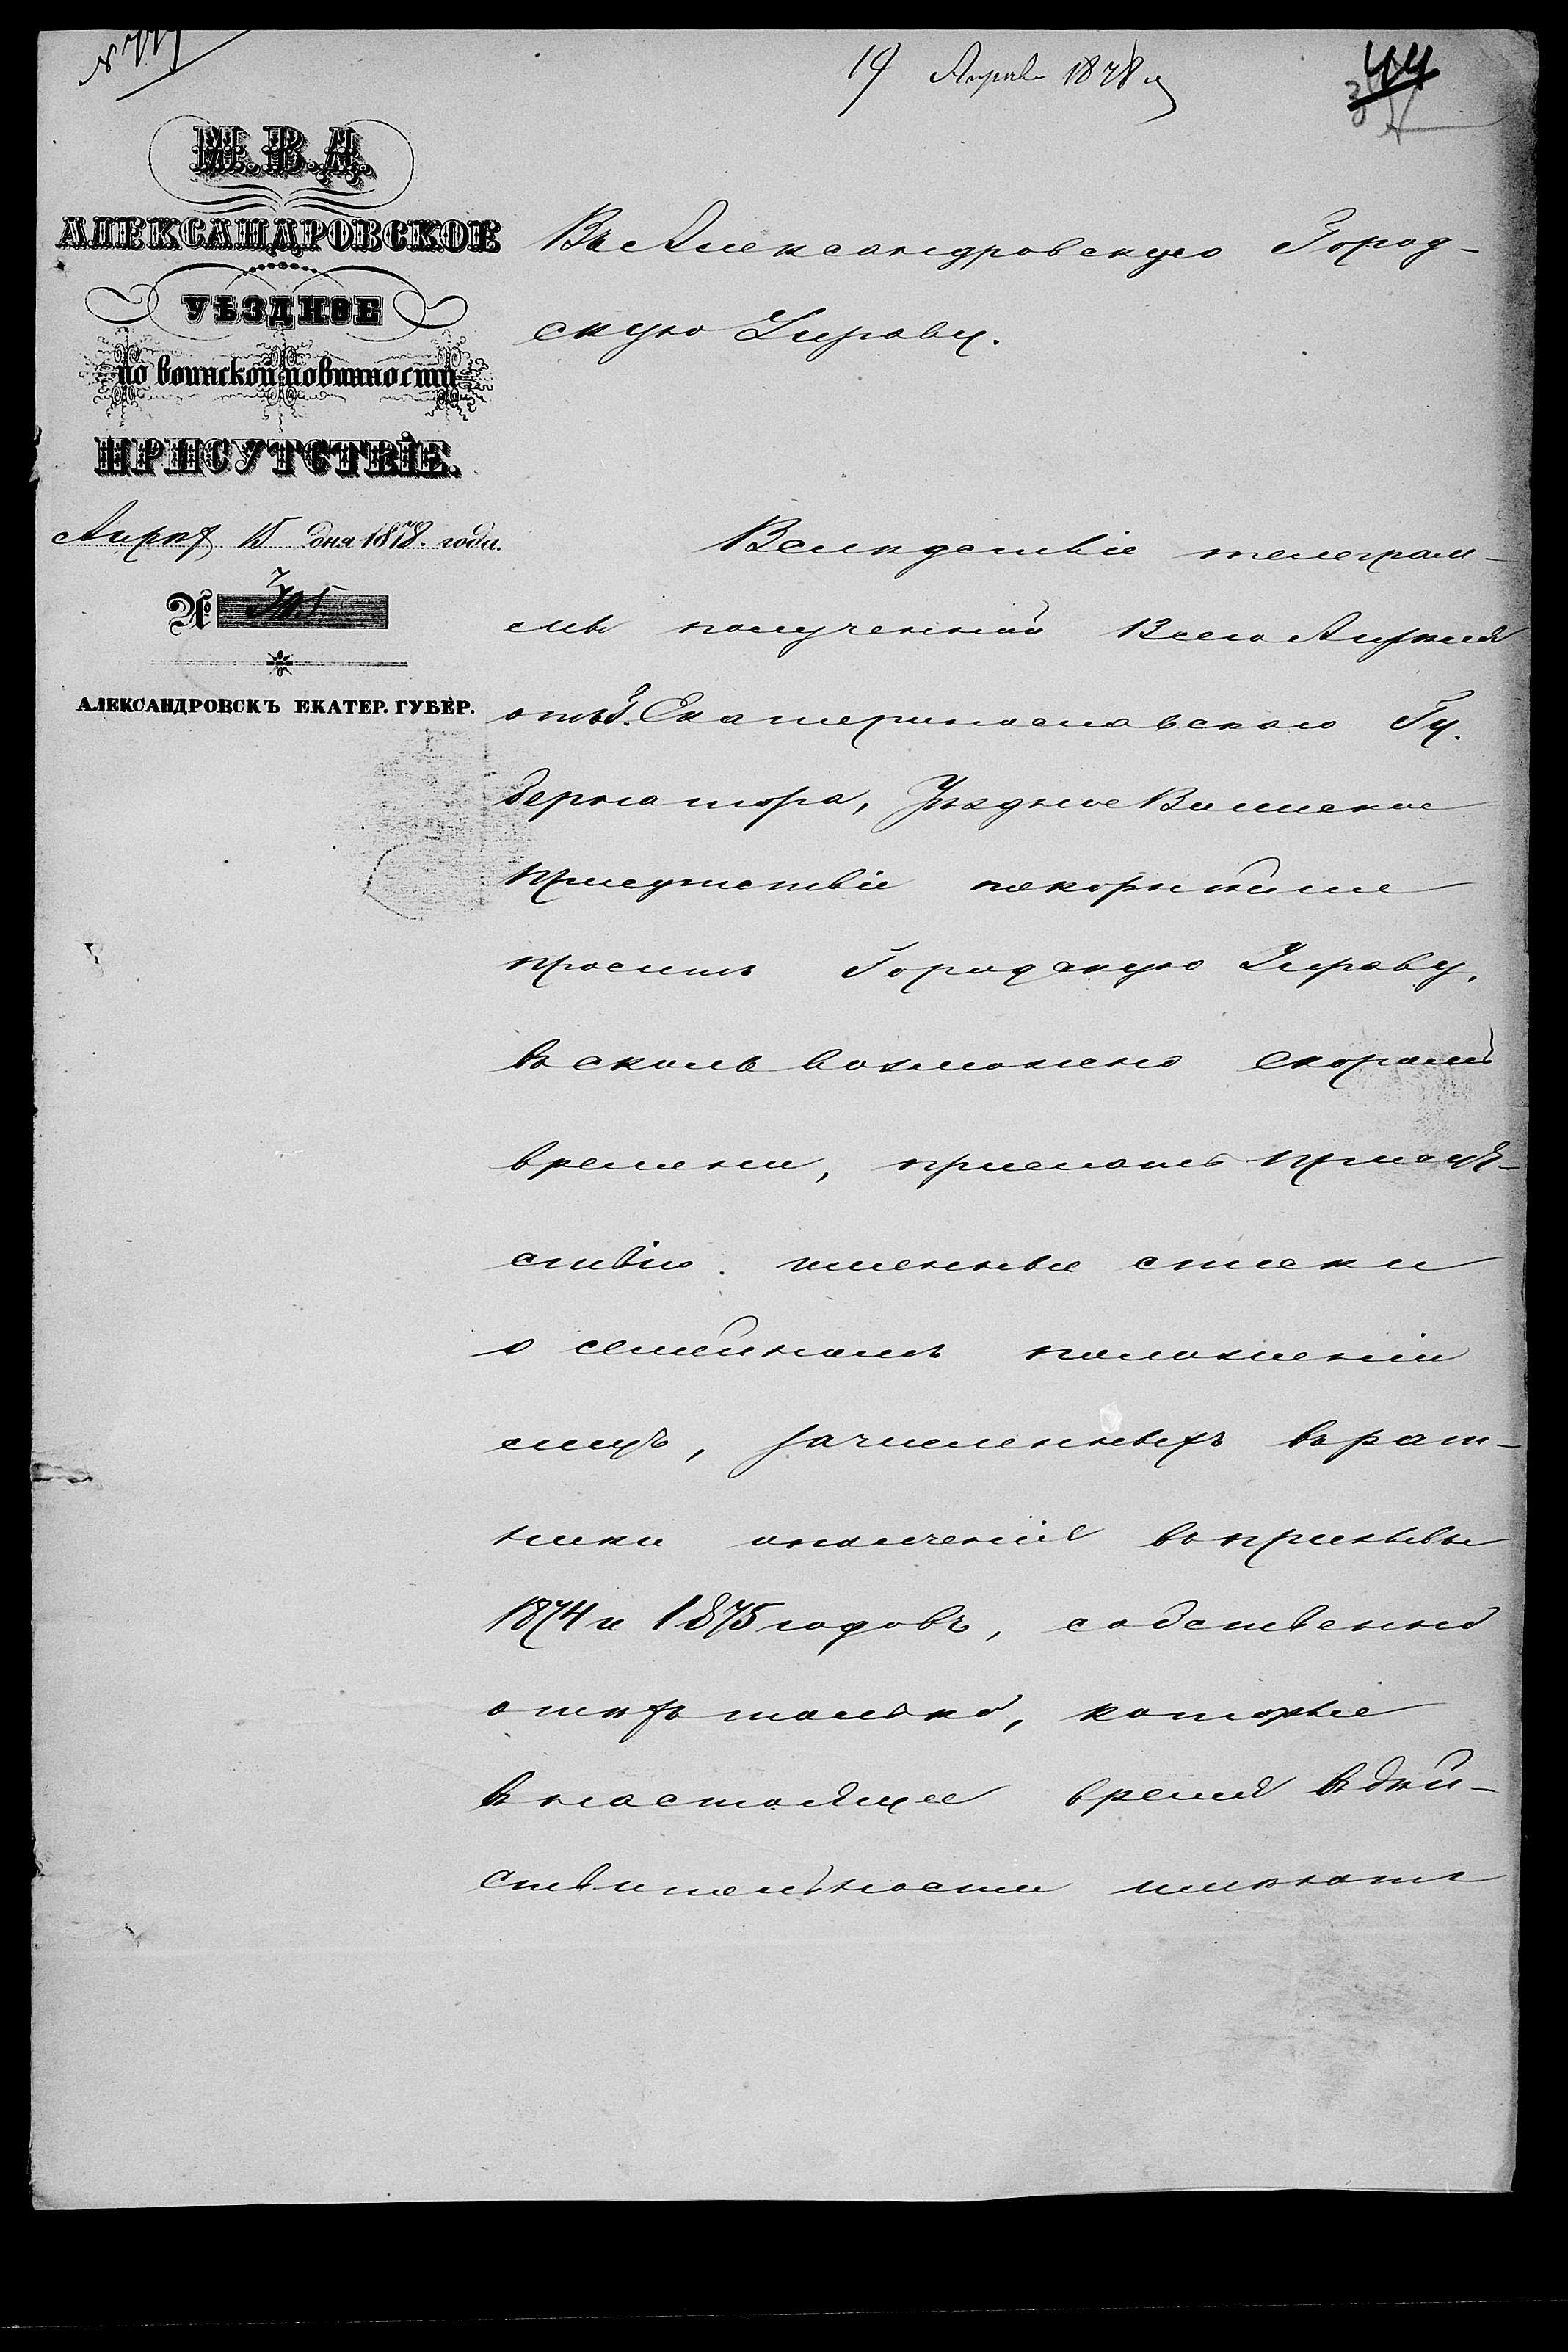 19 Апрѣля 1878 г
44
М.В.Д.
АЛЕКСАНДРОВСКОЕ
УѢЗДНОЕ
по воинской повинности
ПРИСУТСТВІЕ.
Апрѣля 15 дня 1878. года.
№ 305.
АЛЕКСАНДРОВСКЪ ЕКАТЕР. ГУБЕР.
Въ Александровскую Город-
скую Управу.
Вслѣдствіе телеграм-
мы полученной 13 сего Апрѣля
отъ Г. Екатеринославскаго Гу-
бернатора, Уѣздное Воинское
Присутствіе покорнѣйше
проситъ Городскую Управу,
въ сколь возможно скоромъ
времени, прислать Присут-
ствію именные списки
о семейномъ положеніи
лицъ, зачисленныхъ въ рат-
ники ополченія въ призывы
1874 и 1875 годовъ, собственно
о тѣхъ только, которые
въ настоящее время въ дѣй-
ствительности имѣютъ